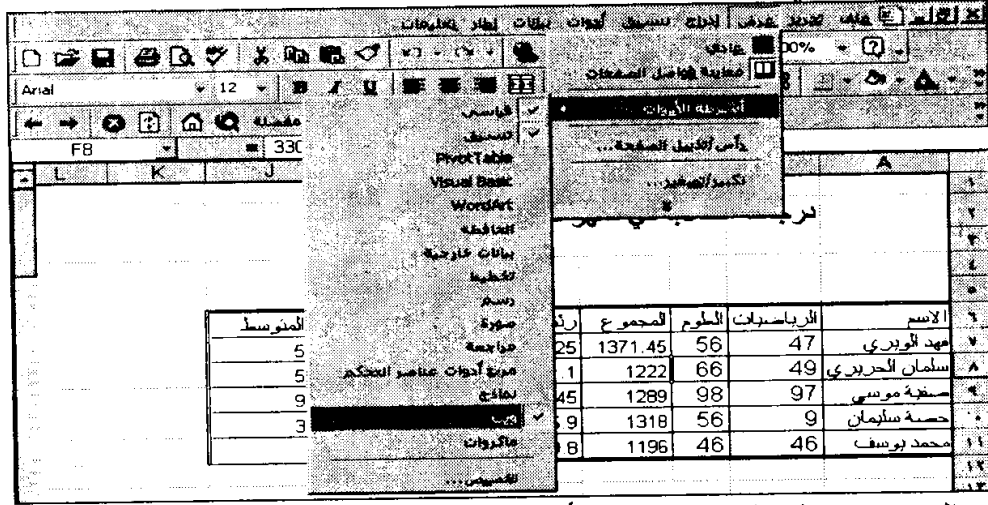 ملف تحرير عرض إدراج تنسيق أدوات بيانات إطار تعليمات
00%
Arial 12 B I U
F8 = 330
عادي
معاينة فواصل الصفحات
أشرطة الأدوات
رأس/تذييل الصفحة...
تكبير/تصغير...
قياسي
تنسيق
PivotTable
Visual Basic
WordArt
الحافظة
بيانات خارجية
تخطيط
رسم
صورة
مراجعة
مربع أدوات عناصر التحكم
نماذج
ويب
ماكروات
تخصيص...
A J K L
١
٢
٣
٤
٥
٦ الاسم الرياضيات العلوم المجموع المتوسط
٧ فهد الوبري 47 56 1371.45 25 5
٨ سلمان الحربري 49 66 1222 .1 5
٩ صفية موسى 97 98 1289 45 9
٠ حصة سليمان 9 56 1318 .9 3
١١ محمد يوسف 46 46 1196 .8
١٢
١٣